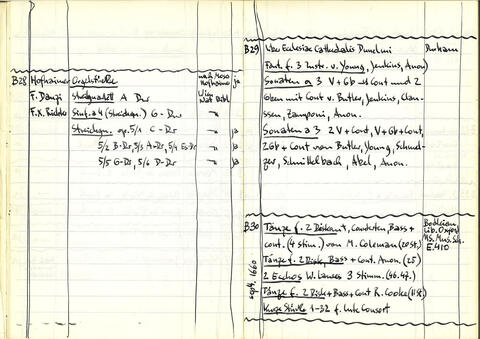 B28 Hofhaimer Orgelstücke nach Moser Hofhaimer ja
F. Danzi Streichquartett A Dur Wien Nat Bibl
F.X. Richter Sinf. a 4 (Streichqu.) G-Dur
Streichqu. op. 5/1 C-Dur ja
5/2 B-Dur, 5/3 A-Dur, 5/4 Es-Dur ja
5/5 G-Ds, 5/6 D-Ds ja
B29 Ecclesiae Cathedralis Dunelmi Durham
Fant. f. 3 Instr. v. Young, Jenkins, Anon.
Sonaten a 3 V+Gb es Cont und 2
Gben mit Cont v. Butler, Jenkins, Clau-
ssen, Zamponi, Anon.
Sonaten a 3 2 V+Cont, V+Gb+Cont,
2Gb+Cont von Butler, Young, Schmel-
zer, Schnittelbach, Abel, Anon.
B30 Tänze f. 2 Diskant, Bass+ Bodleian
cont. (4 stim.) von M. Coleman (20 St.) Lib. Oxford
Tänze f. 2 Disk, Bass+Cont. Anon. (25) Ms. Mus. Sch.
E.410
2 Echos W. Lawes 3 Stimm. (46.47.)
Tänze f. 2 Disk+Bass+Cont R. Cooke (11 St.)
Kurze Stücke 1-32 f. Consort
1660